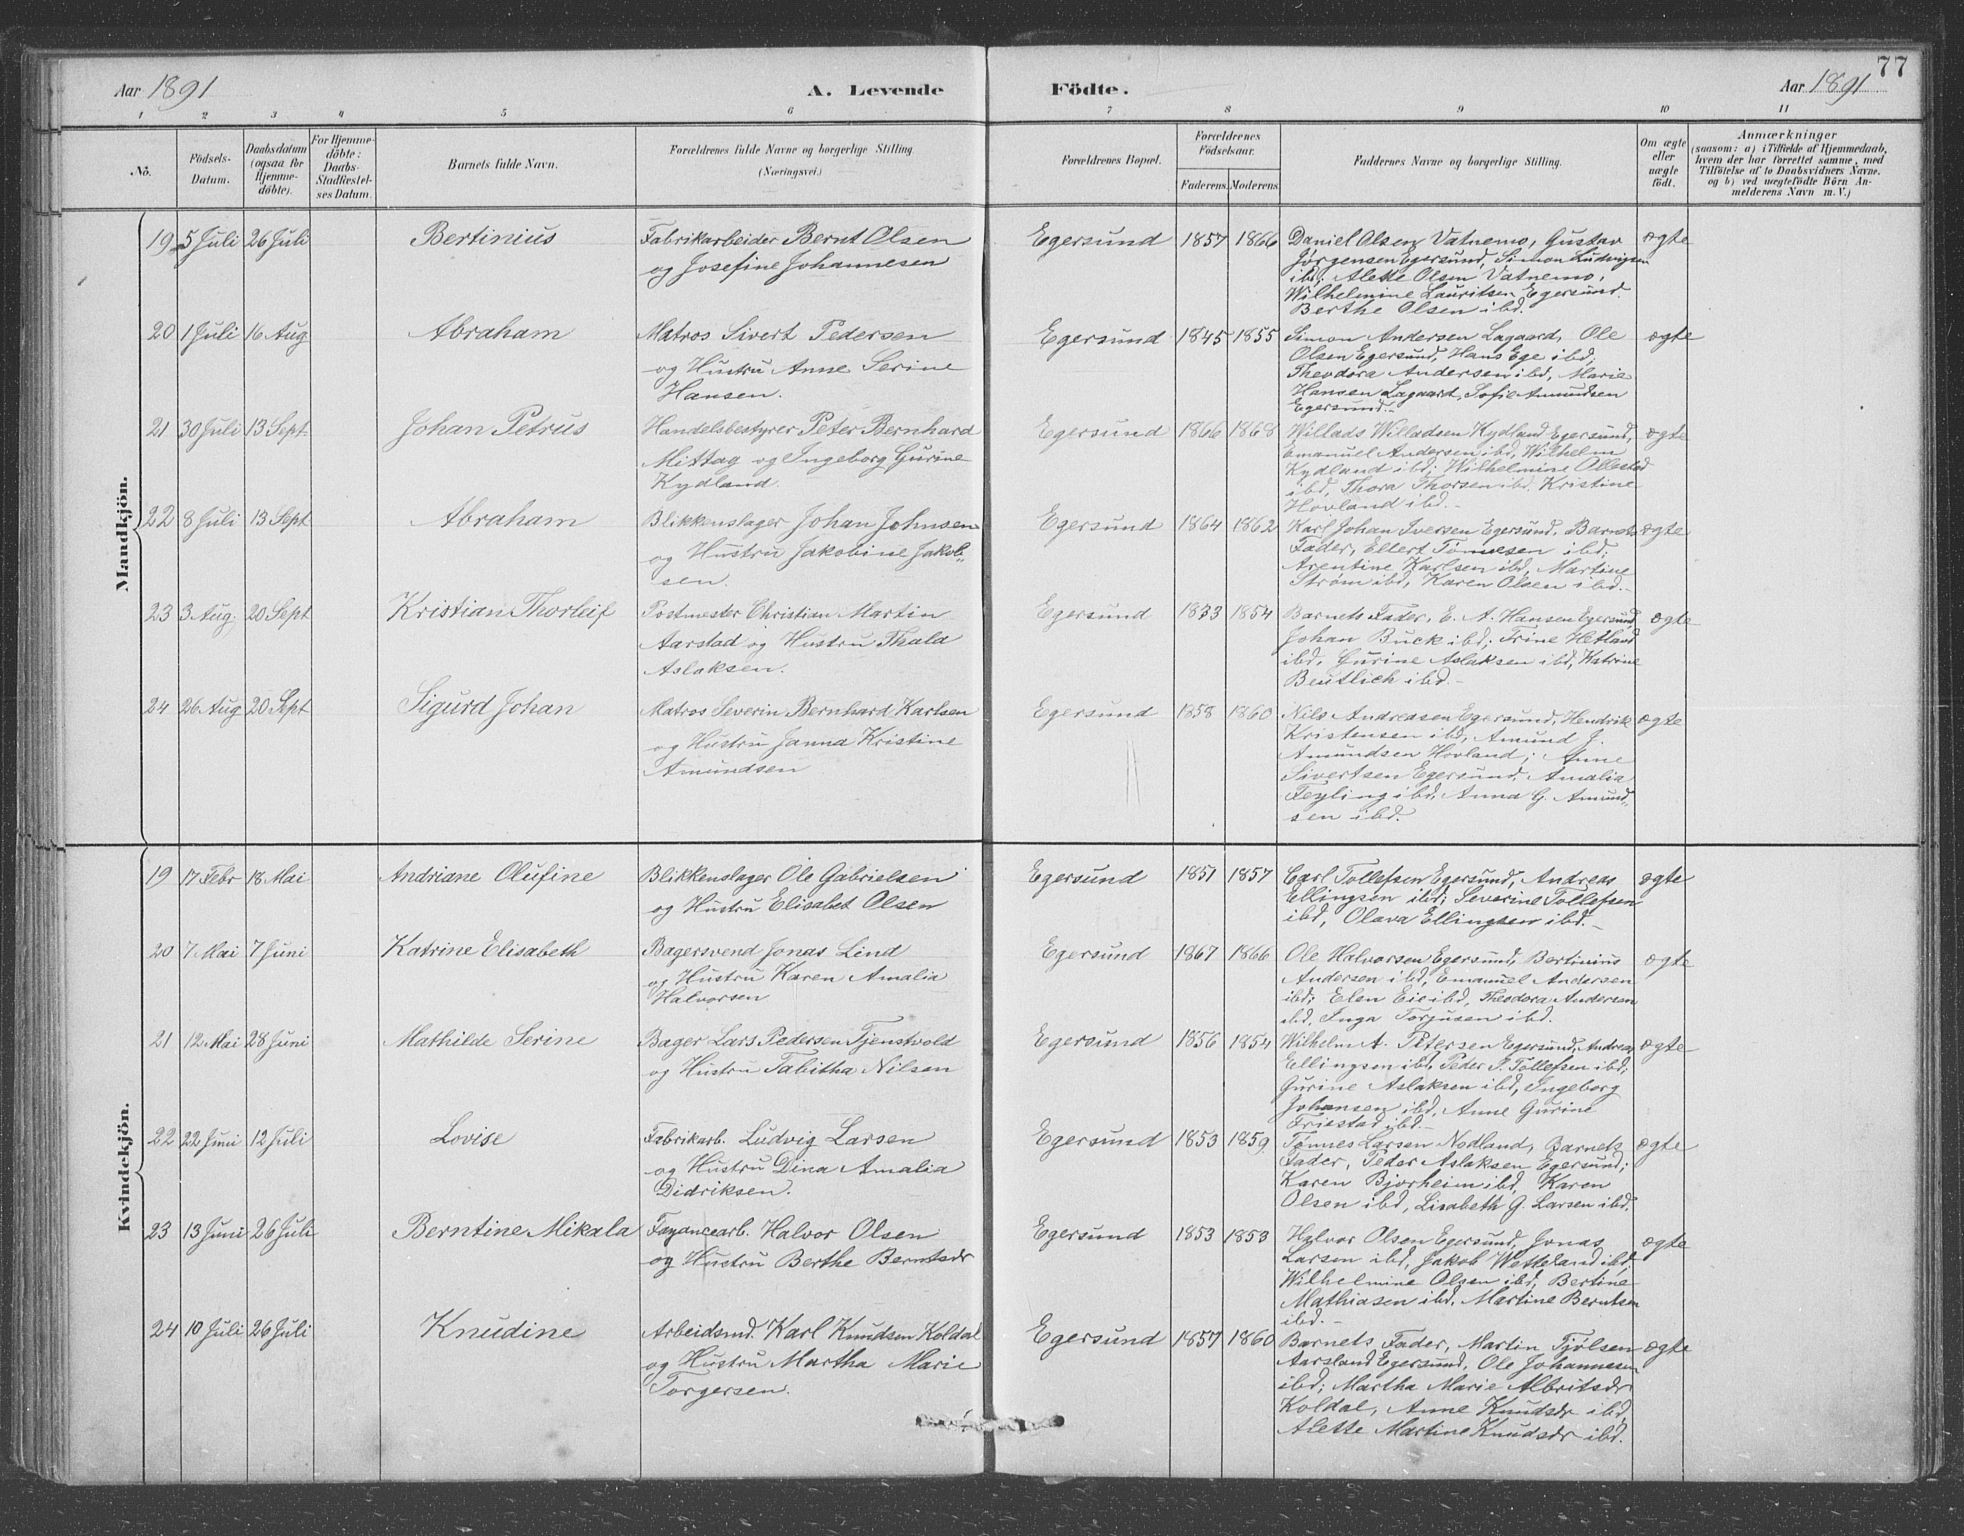 77
Aar 1891
A. Levende Födte.
Aar 1891
1 2 3 4 5 6 7 8 9 10 11
No.
Födsels-Datum.
Daabsdatum (ogsaa for Hjemmedöbte).
For Hjemmedöbte: Daabs-Stadfæstelses Datum.
Barnets fulde Navn.
Forældrenes fulde Navne og borgerlige Stilling.
(Næringsvei.)
Forældrenes Bopæl.
Forældrenes Födselsaar.
Faderens. Moderens.
Faddernes Navne og borgerlige Stilling.
Om ægte eller uægte födt.
Anmærkninger
(saasom: a) i Tilfælde af Hjemmedaab,
hvem der har forrettet samme, med
Tilföielse af to Daabsvidners Navne.
og b) ved uægtefödte Börn Anmelderens Navn m. V.)
Mandkjön.
19 5 Juli 26 Juli Bertinius Fabrikarbeider Bernt Olsen Egersund 1857 1866 Daniel Olsen Vatnemo, Gustav ægte
og Josefine Johannesen Jørgensen Egersund, Simon Ludvigsen
ibd; Alette Olsen Vatnemo,
Wilhelmine Lauritsen Egersund
Berthe Olsen ibd.
20 1 Juli 16 Aug Abraham Matros Sivert Pedersen Egersund 1845 1855 Simon Andersen Lagaard, Ole ægte
og Hustru Anne Serine Olsen Egersund, Hans Ege ibd;
Hansen. Theodora Andersen ibd, Marie
Hansen Lagaard, Sofie Amundsen
Egersund.-
21 30 Juli 13 Sept. Johan Petrus Handelsbestyrer Peter Bernhard Egersund 1866 1868 Willads Willadsen Kydland Egersund, ægte
Mittag og Ingeborg Gurine Emanuel Andersen ibd, Wilhelm
Kydland. Kydland ibd; Wilhelmine Ollestad
ibd, Thora Thorsen ibd. Kristine
Hovland ibd.-
22 8 Juli 13 Sept Abraham Blikkenslager Johan Johnsen Egersund 1864 1862 Karl Johan Iversen Egersund, Barnets ægte
og Hustru Jakobine Jakob- Fader, Ellert Tønnesen ibd;
sen. Arentine Karlsen ibd, Martine
Strøm ibd, Karen Olsen ibd.-
23 3 Aug. 20 Sept Kristian Thorleif Postmester Christian Martin Egersund 1833 1854 Barnets Fader, E. A. Hansen Egersund, ægte
Aarstad og Hustru Thala Johan Buck ibd; Trine Hetland
Aslaksen. ibd, Gurine Aslaksen ibd, Katrine
Beutlich ibd.-
24 26 Aug 20 Sept Sigurd Johan Matros Severin Bernhard Karlsen Egersund 1858 1860 Nils Andreasen Egersund, Hendrik ægte
og Hustru Janna Kristine Kristensen ibd, Amund J.
Amundsen Amundsen Hovland; Anne
Sivertsen Egersund, Amalia
Feyling ibd, Anna G. Amund-
sen ibd.
Kvindekjön.
19 17 Febr 18 Mai Andriane Olufine Blikkenslager Ole Gabrielsen Egersund 1851 1857 Carl Tollefsen Egersund, Andreas ægte
og Hustru Elisabet Olsen Ellingsen ibd; Severine Tollefsen
ibd, Olava Ellingsen ibd.-
20 7 Mai 7 Juni Katrine Elisabeth Bagersvend Jonas Lind Egersund 1867 1866 Ole Halvorsen Egersund, Bertinius ægte
og Hustru Karen Amalia Andersen ibd, Emanuel Andersen
Halvorsen ibd; Elen Eie ibd, Theodora Andersen
ibd, Inga Torjusen ibd.
21 12 Mai 28 Juni Mathilde Serine Bager Lars Pedersen Tjenstvold Egersund 1856 1854 Wilhelm A. Petersen Egersund, Andreas ægte
og Hustru Tabitha Nilsen Ellingsen ibd, Peder P. Tollefsen ibd;
Gurine Aslaksen ibd, Ingeborg
Johansen ibd, Anne Gurine
Friestad ibd.-
22 22 Juni 12 Juli Lovise Fabrikarb. Ludvig Larsen Egersund 1853 1859 Tønnes Larsen Nodland, Barnets ægte
og Hustru Dina Amalia Fader, Peder Aslaksen Egersund;
Didriksen. Karen Bjorheim ibd, Karen
Olsen ibd, Lisabeth G. Larsen ibd.
23 13 Juni 26 Juli Berntine Mikala Fayancearb. Halvor Olsen Egersund 1853 1853 Halvor Olsen Egersund, Jonas ægte
og Hustru Berthe Berntsdr Larsen ibd, Jakob Wetteland ibd;
Wilhelmine Olsen ibd, Bertine
Mathiasen ibd, Martine Berntsen
ibd.-
24 10 Juli 26 Juli Knudine Arbeidsmd. Karl Knudsen Koldal Egersund 1857 1860 Barnets Fader, Martin Tjølsen ægte
og Hustru Martha Marie Aarsland Egersund, Ole Johannesen
Torgersen. ibd; Martha Marie Albritsdr
Koldal, Anne Knudsdr ibd,
Alette Martine Knudsdr ibd.